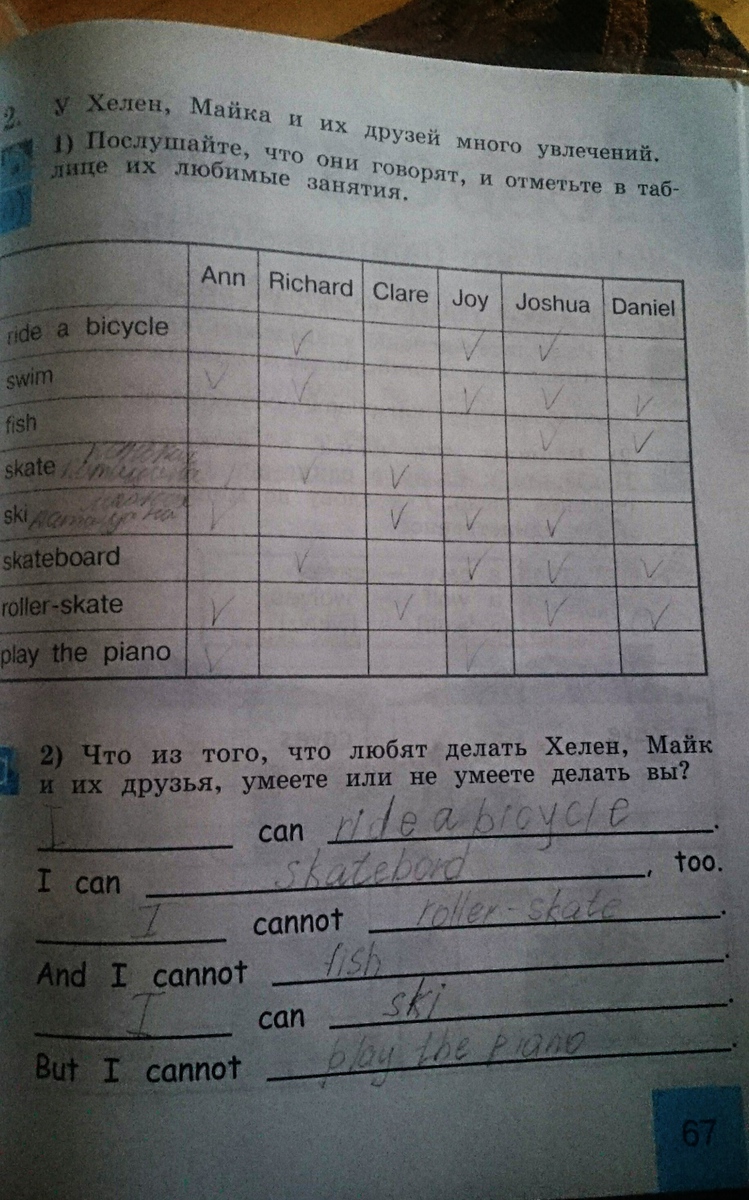 2. У Хелен, Майка и их друзей много увлечений.
1) Послушайте, что они говорят, и отметьте в таб-
лице их любимые занятия.
Ann Richard Clare Joy Joshua Daniel
ride a bicycle V V V
swim V V V V V
fish V V
skate V V
ski V V V V
skateboard V V V V
roller-skate V V V V
play the piano V V
2) Что из того, что любят делать Хелен, Майк
и их друзья, умеете или не умеете делать вы?
I can ride a bicycle.
I can skatebord, too.
I cannot roller-skate.
And I cannot fish.
I can ski.
But I cannot play the piano.
67